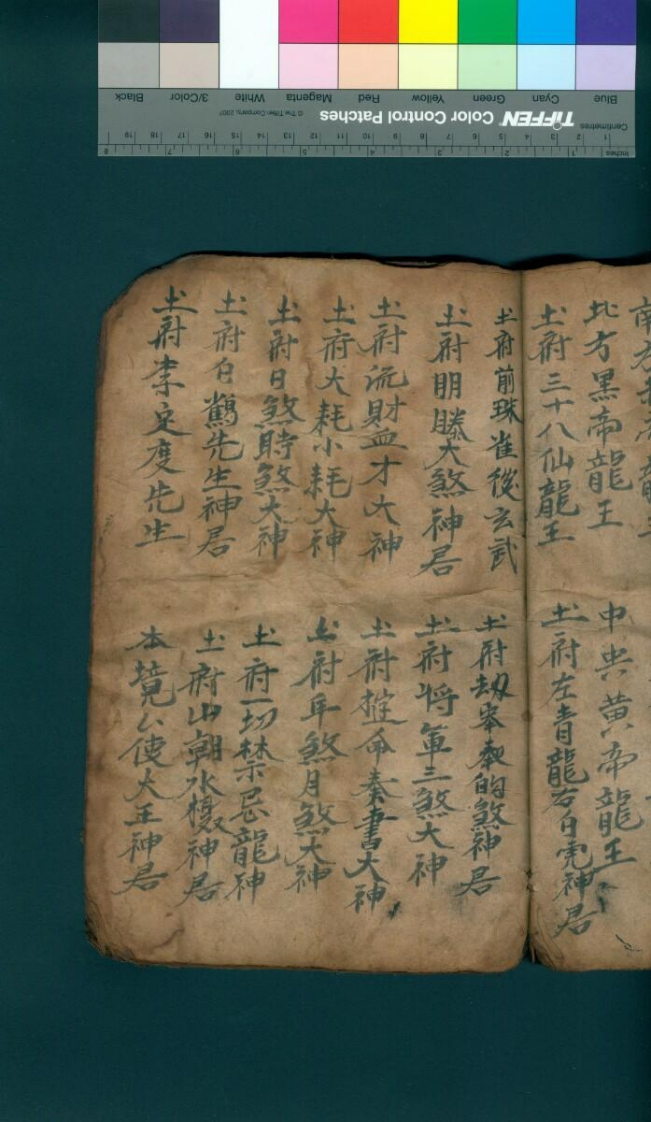 Inches
Centimetres
TIFFEN Color Control Patches
© The Tiffen Company, 2007
Blue Cyan Green Yellow Red Magenta White 3/Color Black
中央黄帝龍王
北方黑帝龍王
土府三十八仙龍王
土府左青龍右白虎神居
土府前珠雀後玄武
土府劫 的煞神居
土府明 大煞神居
土府将軍三煞大神
土府流財血才大神
土府 命奏書大神
土府大耗小耗大神
土府年煞月煞大神
土府日煞時煞大神
土府一切禁忌龍神
土府白鶴先生神居
土府山朝水 神居
土府李定度先生
本境公使大王神居